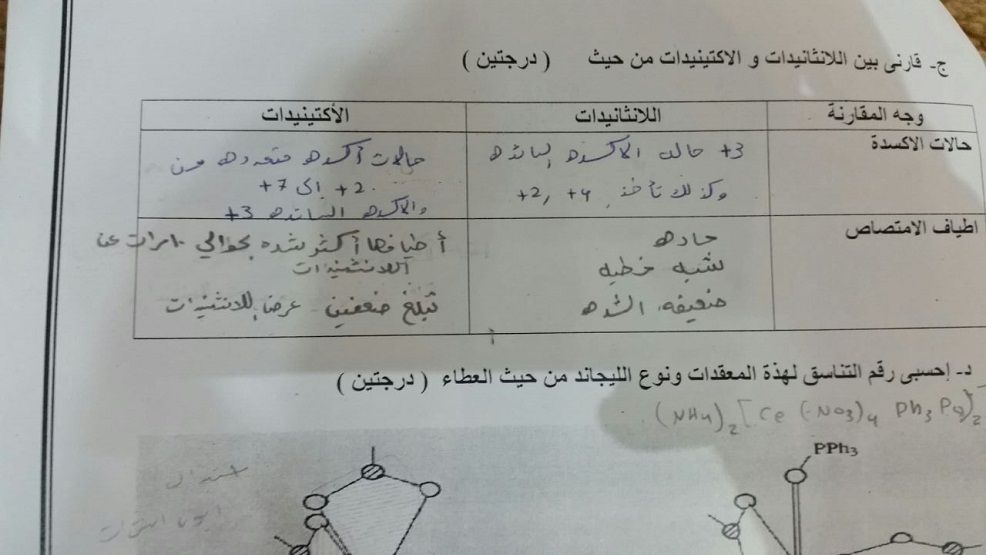 ج- قارنى بين اللانثانيدات و الاكتينيدات من حيث ( درجتين )
وجه المقارنة اللانثانيدات الأكتينيدات
حالات الاكسدة
+3 حالة الاكسده السائده
وكذلك تأخذ +4 ,+2
حالات أكسده متعدده من
+2 الى +7
والاكسده السائده +3
اطياف الامتصاص
حاده
شبه خطيه
ضعيفه الشده
أطيافها أكثر شده بحوالي 10 مرات عن
اللانثنيدات
تبلغ ضعفين عرض اللانثنيدات
د- إحسبى رقم التناسق لهذة المعقدات ونوع الليجاند من حيث العطاء ( درجتين )
(NH4)2 [Ce (NO3)4
PPh3